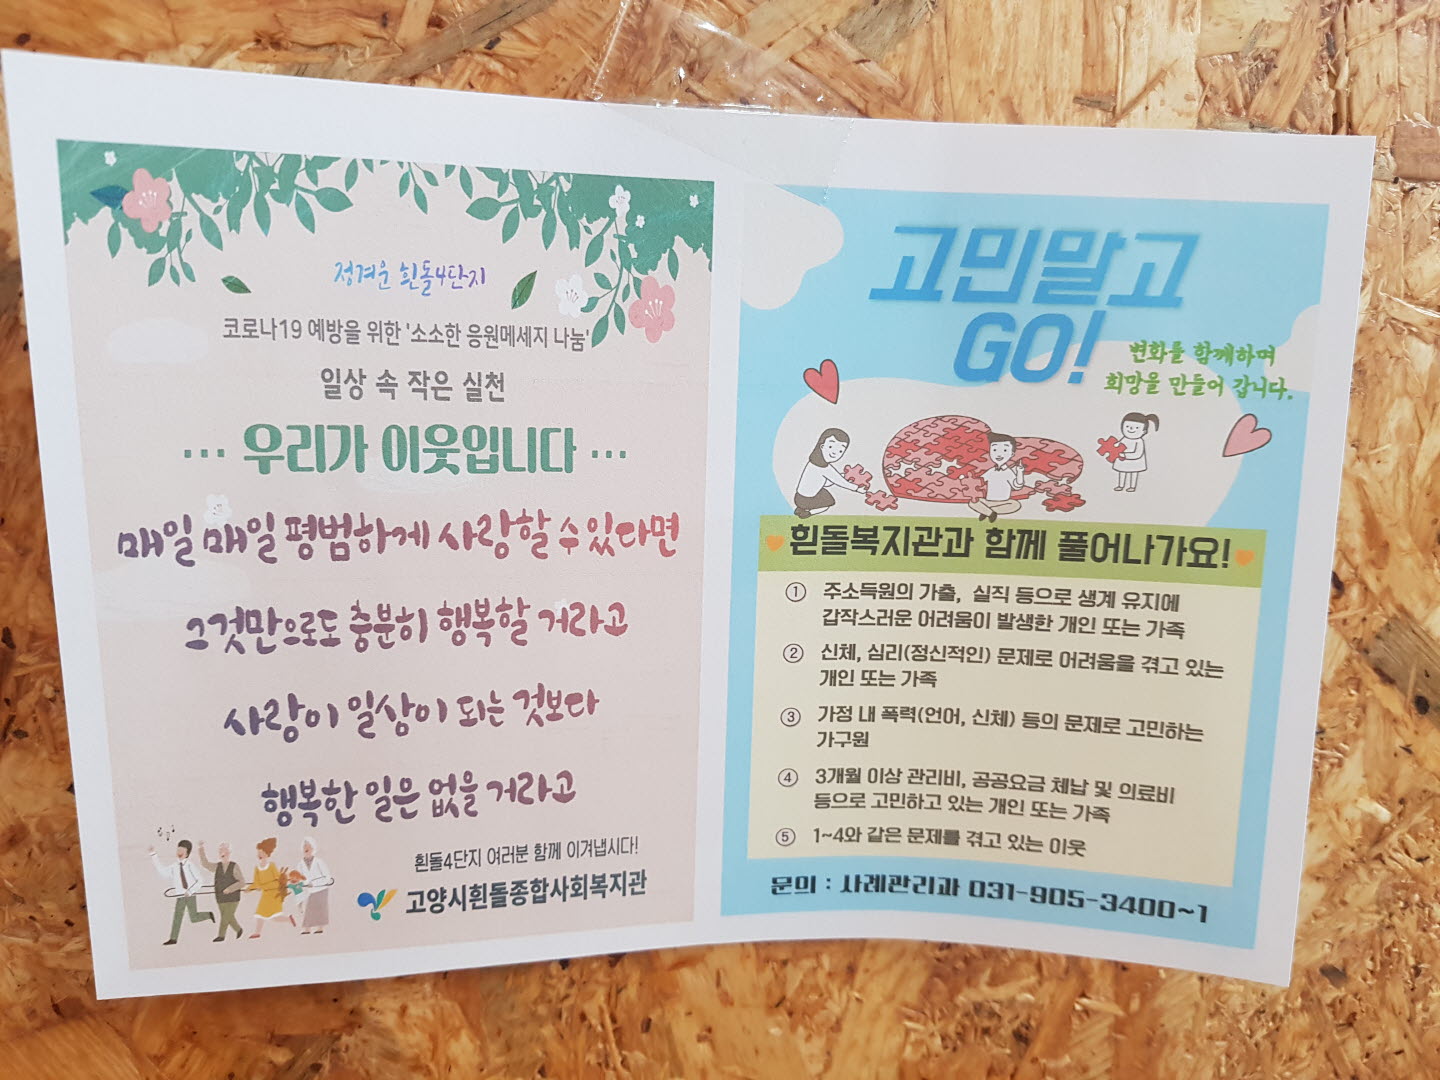 정겨운 흰돌4단지
코로나19 예방을 위한 '소소한 응원메세지 나눔'
일상 속 작은 실천
··· 우리가 이웃입니다 ···
매일 매일 평범하게 사랑할 수 있다면
그것만으로도 충분히 행복할 거라고
사랑이 일상이 되는 것보다
행복한 일은 없을 거라고
흰돌4단지 여러분 함께 이겨냅시다!
고양시흰돌종합사회복지관
고민말고
GO!
변화를 함께하며
희망을 만들어 갑니다.
흰돌복지관과 함께 풀어나가요!
① 주소득원의 가출, 실직 등으로 생계 유지에
갑작스러운 어려움이 발생한 개인 또는 가족
② 신체, 심리(정신적인) 문제로 어려움을 겪고 있는
개인 또는 가족
③ 가정 내 폭력(언어, 신체) 등의 문제로 고민하는
가구원
④ 3개월 이상 관리비, 공공요금 체납 및 의료비
등으로 고민하고 있는 개인 또는 가족
⑤ 1~4와 같은 문제를 겪고 있는 이웃
문의 : 사례관리과 031-905-3400~1